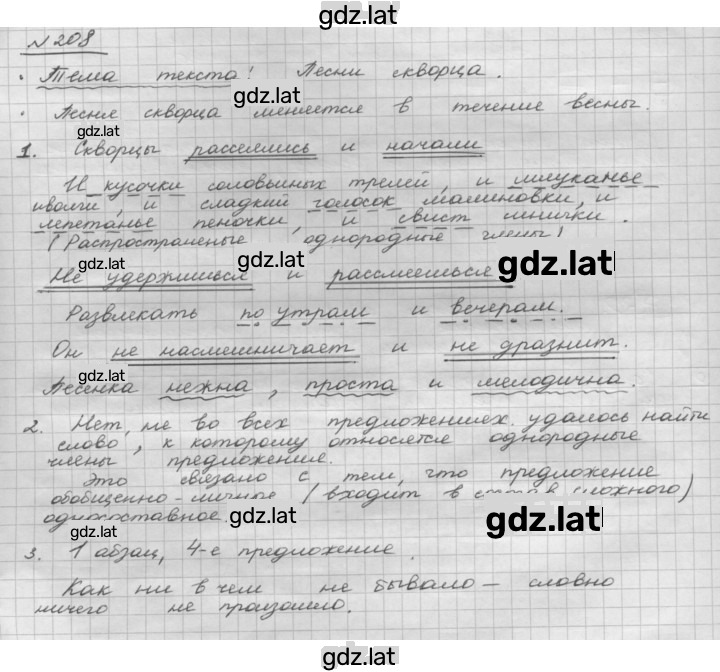 gdz.lat
№ 208
• Тема текста: Песни скворца.
gdz.lat
• Песня скворца меняется в течение весны.
gdz.lat
1. Скворцы расселились и начали
И кусочки соловьиных трелей, и мяуканье
иволги, и сладкий голосок малиновки, и
лепетанье пеночки, и свист синички.
(Распространеные однородные члены)
gdz.lat gdz.lat gdz.lat
Не удержишься и рассмеешься
Развлекать по утрам и вечерам.
Он не насмешничает и не дразнит.
gdz.lat
Песенка нежна, проста и мелодична.
2. Нет, не во всех предложениях удалось найти
слово, к которому относятся однородные
члены предложения.
Это связано с тем, что предложение
обобщенно-личное (входит в состав сложного)
односоставное.
gdz.lat gdz.lat
3. 1 абзац, 4-е предложение.
Как ни в чем не бывало – словно
ничего не произошло.
gdz.lat